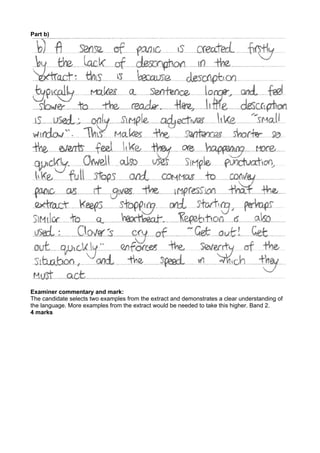 Part b)
b) A sense of panic is created firstly
by the lack of description in the
extract: this is because description
typically makes a sentence longer, and feel
slower to the reader. Here, little description
is used: only simple adjectives like "small
window". This makes the sentences shorter so
the events feel like they are happening more
quickly. Orwell also uses simple punctuation,
like full stops and commas to convey
panic as it gives the impression that the
extract keeps stopping and starting, perhaps
similar to a heartbeat. Repetition is also
used: Clover's cry of "Get out! Get
out quickly" enforces the severity of the
situation, and the speed in which they
must act
Examiner commentary and mark:
The candidate selects two examples from the extract and demonstrates a clear understanding of
the language. More examples from the extract would be needed to take this higher. Band 2.
4 marks